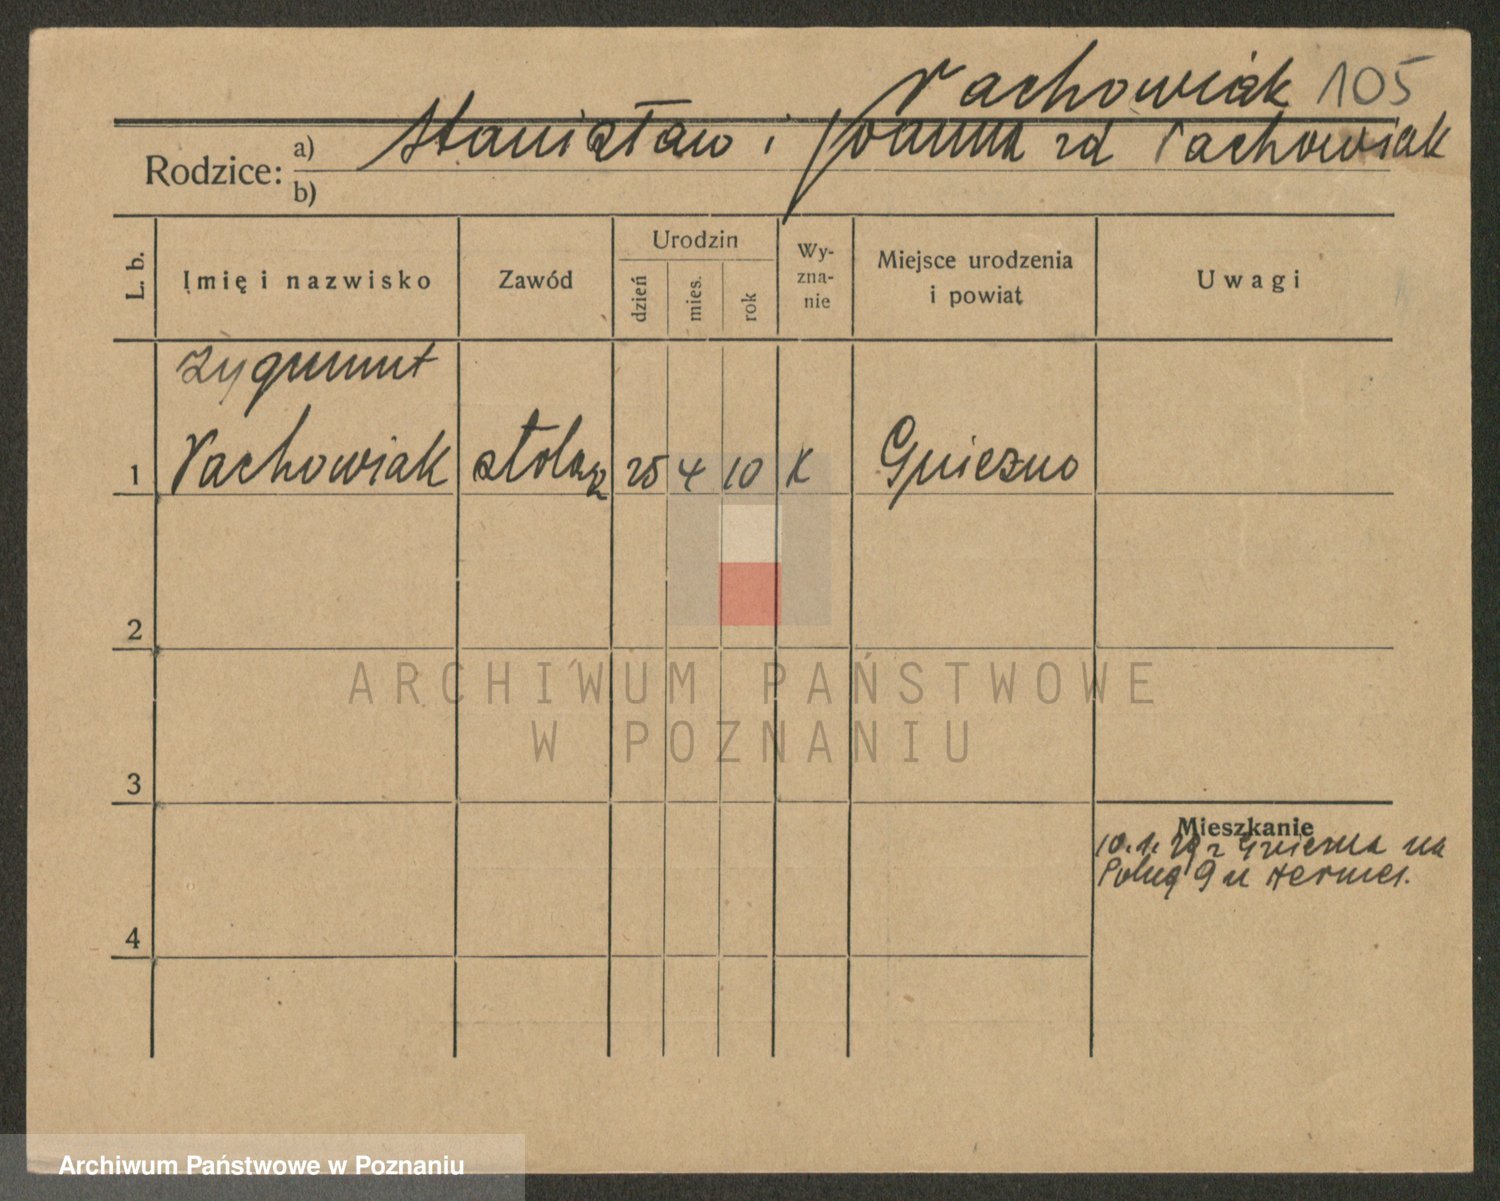 Vachowiak 105
Rodzice: a) Stanisław i Joanna zd Vachowiak
b)
L. b.
Imię i nazwisko
Zawód
Urodzin
dzień
mies.
rok
Wy-
zna-
nie
Miejsce urodzenia
i powiat
Uwagi
Zygmunt
1 Vachowiak stolarz 25 4 10 K Gniezno
2
3
4
Mieszkanie
10.1. 29 z Gniezna na
9 u
ARCHIWUM PAŃSTWOWE
W POZNANIU
Archiwum Państwowe w Poznaniu